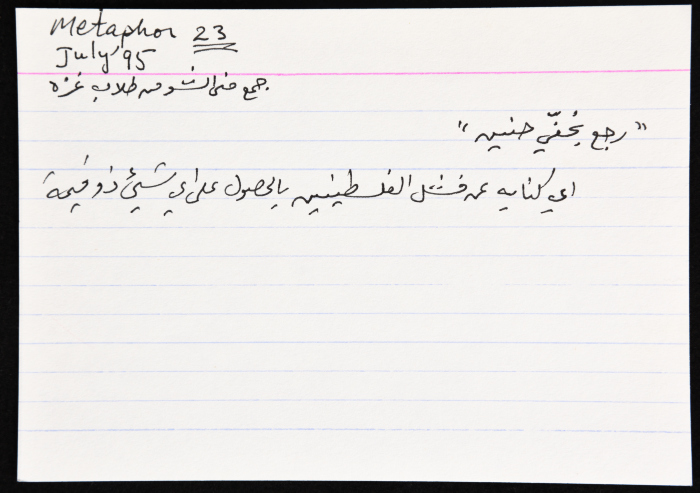 Metaphor 23
July '95
جمع منى الشو من طلاب غزه
"رجع بخفّي حنين"
اي كنايه عن فشل الفلسطينين بالحصول على اي شيئ ذو قيمة